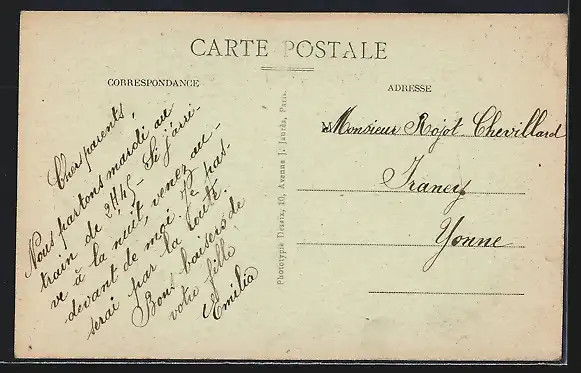 CARTE POSTALE
CORRESPONDANCE
ADRESSE
Chers parents,
Nous partons mardi au
train de 2h45 - Si j'arri-
ve à la nuit, venez au-
devant de moi. Je pas-
serai par la route.
Bons baisers de
votre fille
Emilia
Phototypie Desaix, 10, Avenue J. Jaurès, Paris.
Monsieur Rojot-Chevillard
Irancy
Yonne